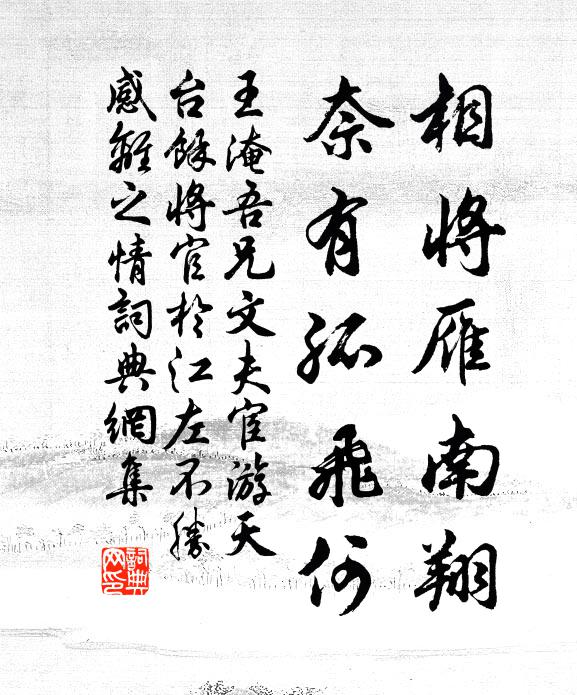 相將雁南翔
奈有孤飛何
王淹吾兄文夫宦游天
台餘將官於江左不勝
感離之情詞典網集
詞典
网印